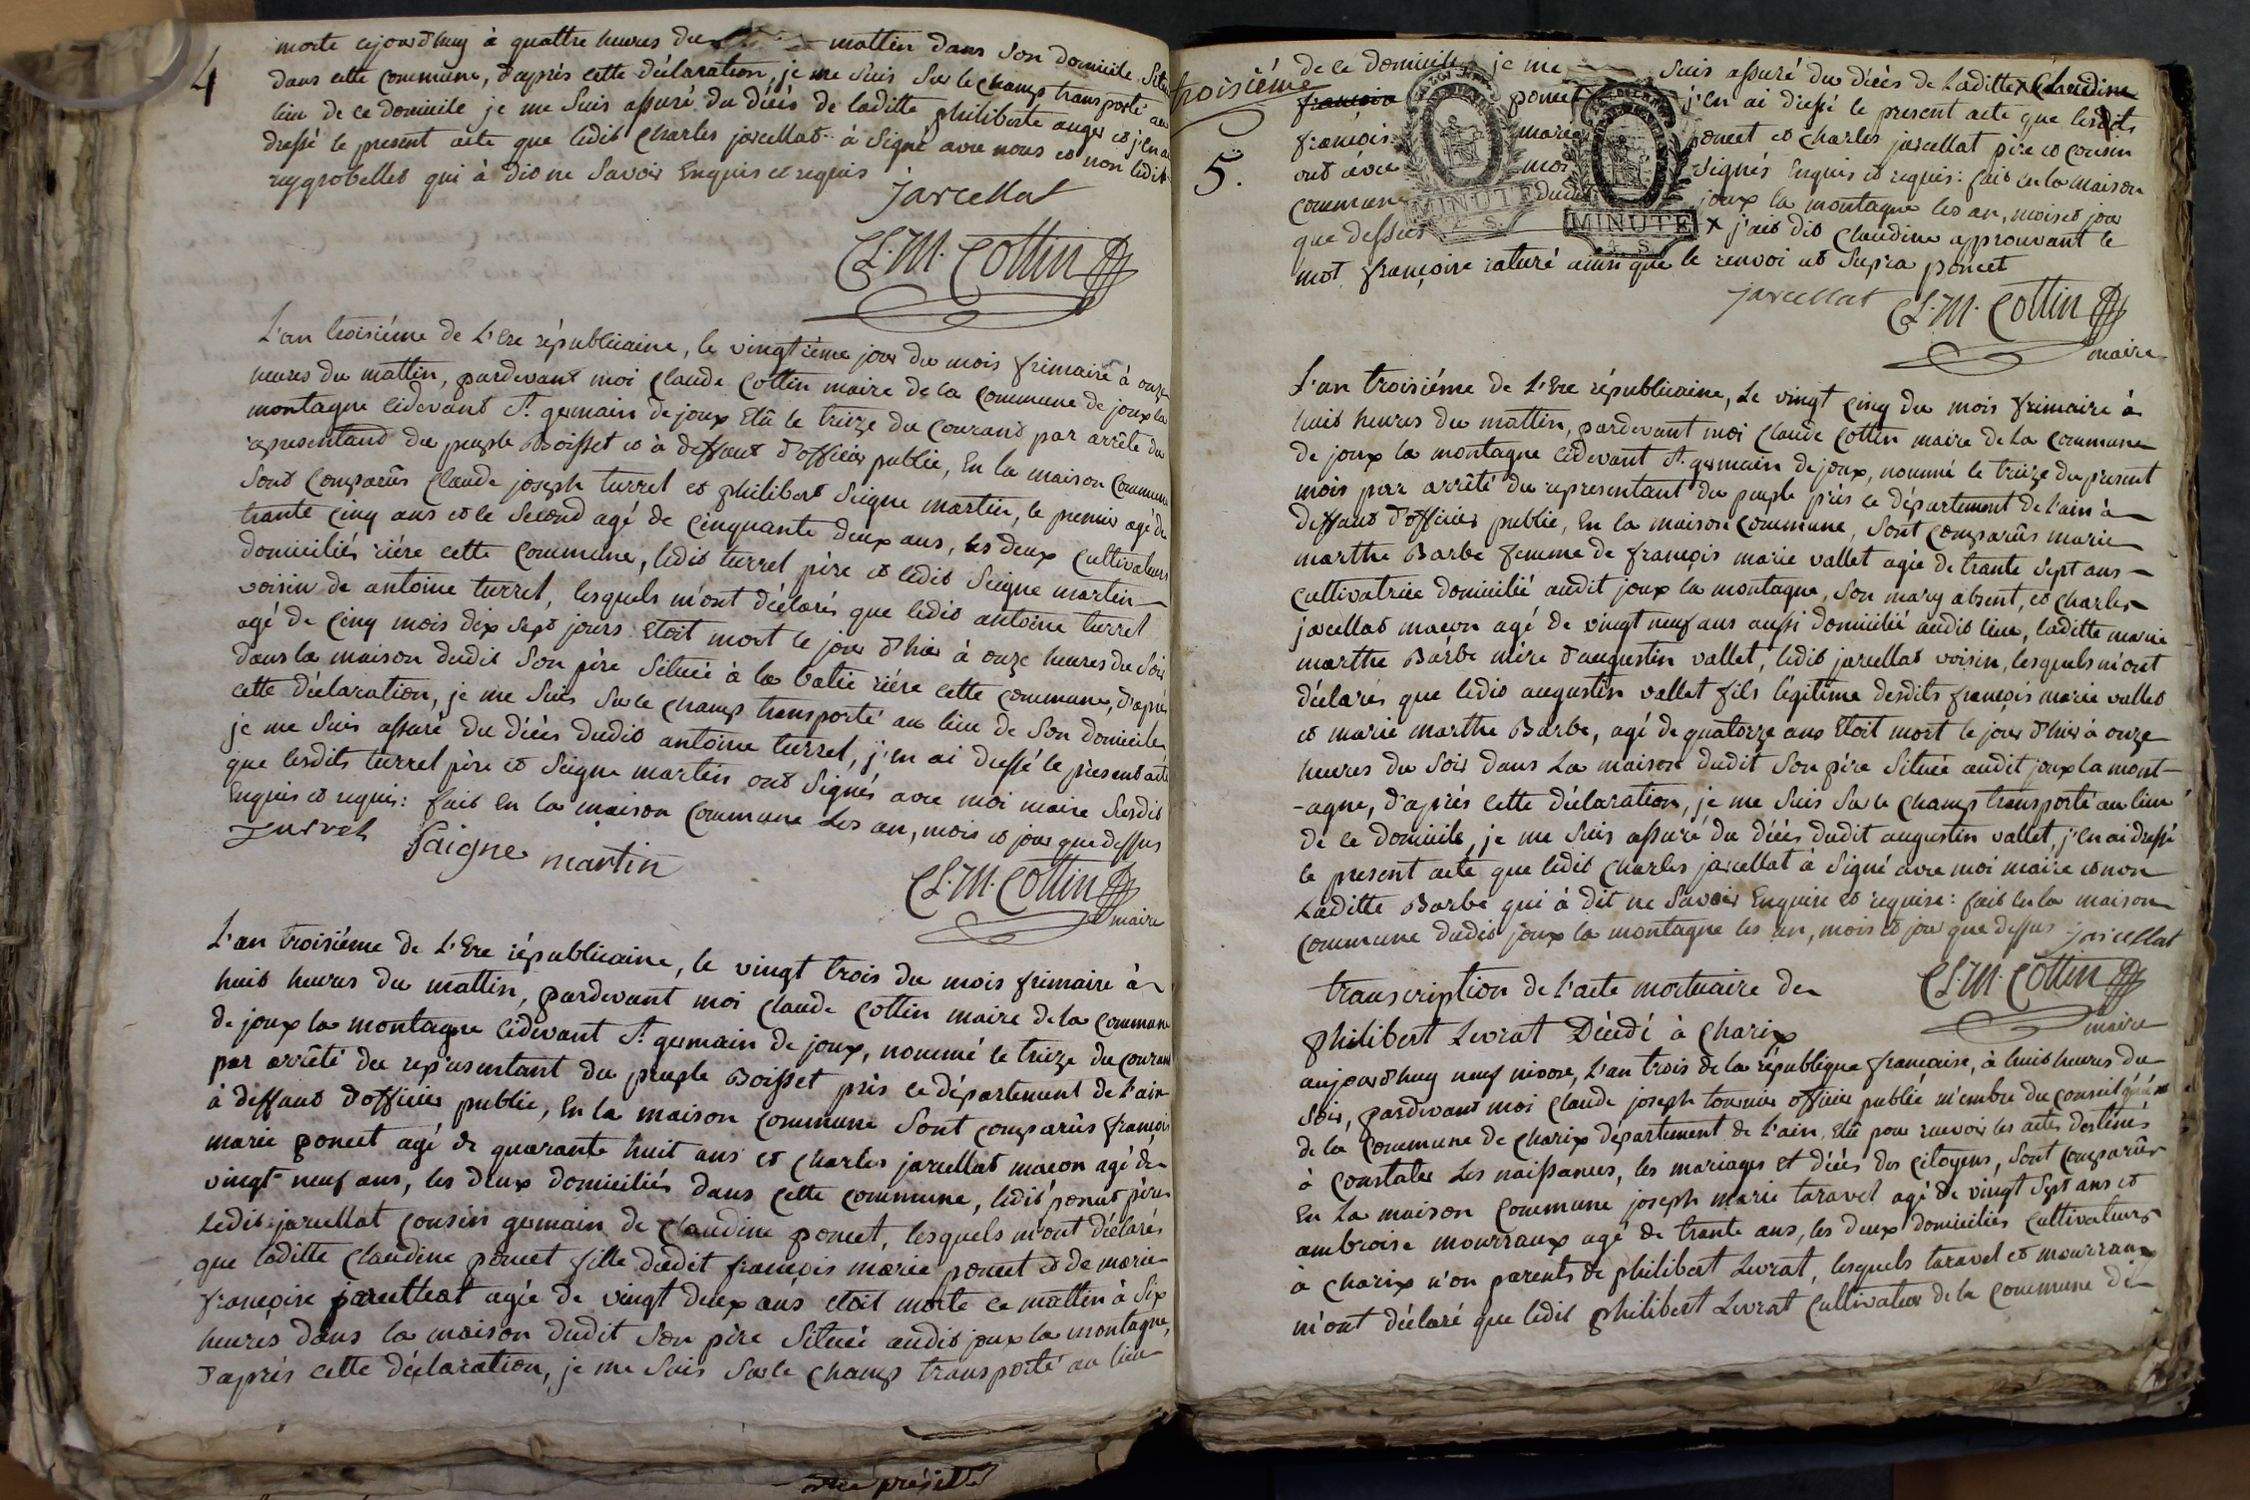 4
morte cejourd'huy à quattre heures du mattin dans son domicile situé
dans cette commune, d'aprés cette déclaration, je me suis sur le champ transporté au
lieu de ce domicile je me suis assuré du décés de laditte philiberte auger et j'en ai
dressé le present acte que ledit Charles jarcellat à signé avec nous et non ledit
reygrobellet qui à dit ne savoir Enquis et requis
jarcellat
Cl. M. Cottin
L'an troisiéme de L'Ere républicaine, le vingtiéme jour du mois frimaire à onze
heures du mattin, pardevant moi Claude Cottin maire de la commune de joux la
montagne cidevant St. germain de joux Elû le treize du courant par arrêté du
representant du peuple Boisset et à deffaut d'officier public, En la maison commune
sont comparûs Claude joseph turrel et philibert Seigne martin, le premier agé de
trante cinq ans et le second agé de cinquante deux ans, les deux cultivateurs
domiciliés riére cette commune, ledit turrel pére et ledit Seigne martin
voisin de antoine turrel, lesquels m'ont déclarés que ledit antoine turrel
agé de cinq mois dix sept jours Etoit mort le jour d'hier à onze heures du soir
dans la maison dudit son pére située à la batie riére cette commune, d'aprés
cette déclaration, je me suis sur le champ transporté au lieu de son domicile,
je me suis assuré du décés dudit antoine turrel, j'en ai dressé le present acte
que lesdits turrel pére et Seigne martin ont signés avec moi maire susdit
Enquis et requis: fait En la maison commune les an, mois et jour que dessus
Turrel Saigne martin
Cl. M. Cottin
maire
L'an troisiéme de L'Ere républicaine, le vingt trois du mois frimaire à
huit heures du mattin, pardevant moi Claude Cottin maire de la commune
de joux la montagne cidevant St. germain de joux, nommé le treize du courant
par arrêté du representant du peuple Boisset prés ce département de l'ain
à deffaut d'officier public, En la maison commune sont comparûs françois
marie poncet agé de quarante huit ans et Charles jarcellat macon agé de
vingt-neuf ans, les deux domiciliés dans cette commune, ledit poncet pére
ledit jarcellat cousin germain de Claudine poncet, lesquels m'ont déclarés
que laditte Claudine poncet fille dudit françois marie poncet et de marie
françoise jarcellat agée de vingt deux ans etoit morte ce mattin à six
heures dans la maison dudit son pére située audit joux la montagne,
d'aprés cette déclaration, je me suis sur le champ transporté au lieu
troisiéme
5.
de ce domicile, je me suis assuré du décés de laditte x Claudine
françoise poncet j'en ai dressé le present acte que lesdits
françois marie poncet et Charles jarcellat pére et cousin
ont avec moi signés Enquis et requis: fait En la maison
commune dudit joux la montagne les an, mois et jour
que dessus x j'ait dit Claudine approuvant le
mot françoise raturé ainsi que le renvoi ut supra poncet
MINUTE
MINUTE
jarcellat Cl. M. Cottin
maire
L'an troisiéme de L'Ere républicaine, Le vingt cinq du mois frimaire à
huit heures du mattin, pardevant moi Claude Cottin maire de la commune
de joux la montagne cidevant St. germain de joux, nommé le treize du present
mois par arrêté du representant du peuple prés ce département de l'ain à
deffaut d'officier public, En la maison commune, sont comparûs marie
marthe Barbe femme de françois marie vallet agée de trante sept ans
cultivatrice domicilié audit joux la montagne, son mary absent, et Charles
jarcellat macon agé de vingt neuf ans aussi domicilié audit lieu, laditte marie
marthe Barbe mére d'augustin vallet, ledit jarcellat voisin, lesquels m'ont
déclarés que ledit augustin vallet fils légitime desdits françois marie vallet
et marie marthe Barbe, agé de quatorze ans Etoit mort le jour d'hier à onze
heures du soir dans La maison dudit son pére située audit joux la mont-
-agne, d'aprés cette déclaration, je me suis sur le champ transporté au lieu
de ce domicile, je me suis assuré du décés dudit augustin vallet, j'en ai dressé
le present acte que ledit Charles jarcellat à signé avec moi maire et non
Laditte Barbe qui à dit ne savoir Enquise et requise: fait En la maison
commune dudit joux la montagne les an, mois et jour que dessus jarcellat
Cl. M. Cottin
maire
transcription de l'acte mortuaire de
philibert Levrat Décedé à Charix
aujourd'huy neuf nivose, L'an trois de la république française, à huit heures du
soir, pardevant moi Claude joseph tournier officier public m'embre du conseil géné
de la commune de charix département de l'ain, Elû pour recevoir les actes destinés
à constater les naissances, les mariages et décés des citoyens, sont comparûs
En La maison commune joseph marie taravel agé de vingt sept ans et
ambroise mourraux agé de trante ans, les deux domiciliés cultivateurs
à charix n'on parents de philibert Levrat, lesquels taravel et mourraux
m'ont déclaré que ledit philibert Levrat cultivateur de la commune de